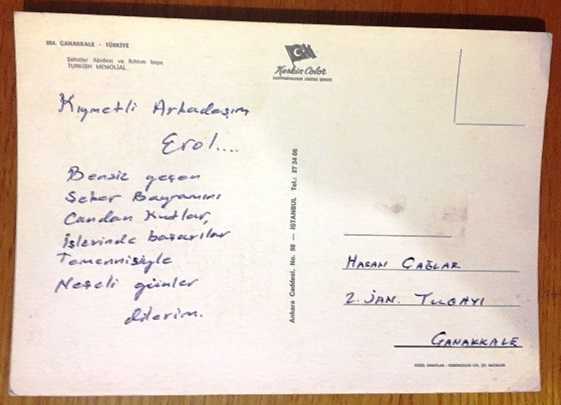 ÇANAKKALE - TÜRKİYE
Şehitler Abidesi ve
TURKISH MEMOLIAL
Keskin Color
Kıymetli Arkadaşım
Erol....
Bensiz geçen
Şeker Bayramını
Candan Kutlar,
işlerinde başarılar
Temennisiyle
Neşeli günler
dilerim.
Ankara Caddesi, No. 98 — İSTANBUL Tel.: 27 24 06
HASAN ÇAĞLAR
2. JAN. TUGAYI
ÇANAKKALE